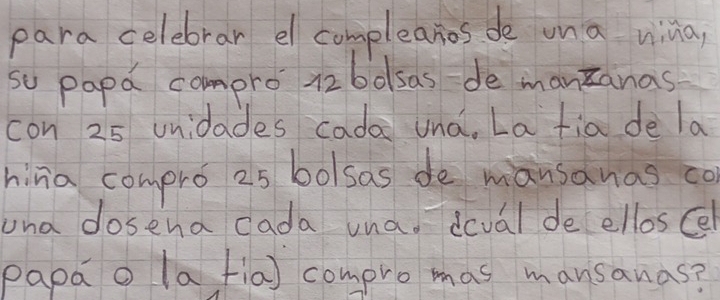 para celebrar el cumpleaños de una niña,
su papá compró 12 bolsas de manzanas
con 25 unidades cada uná. La tia de la
niña compró 25 bolsas de mansanas con
una dosena cada una. ¿cuál de ellos (el
papá o la tia) compro mas mansanas?